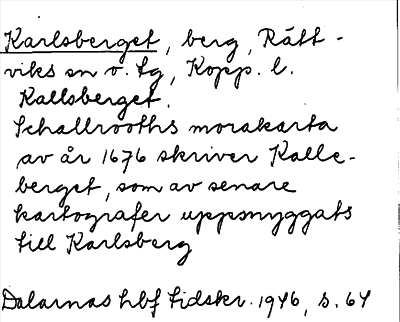 Karlsberget, berg, Rätt-
viks sn o. tg, Kopp. l.
Kallsberget.
Schallrooths morakarta
av år 1676 skriver Kalle-
berget, som av senare
kartografer uppsnyggats
till Karlsberg
Dalarnas hbf tidskr. 1946, s. 64